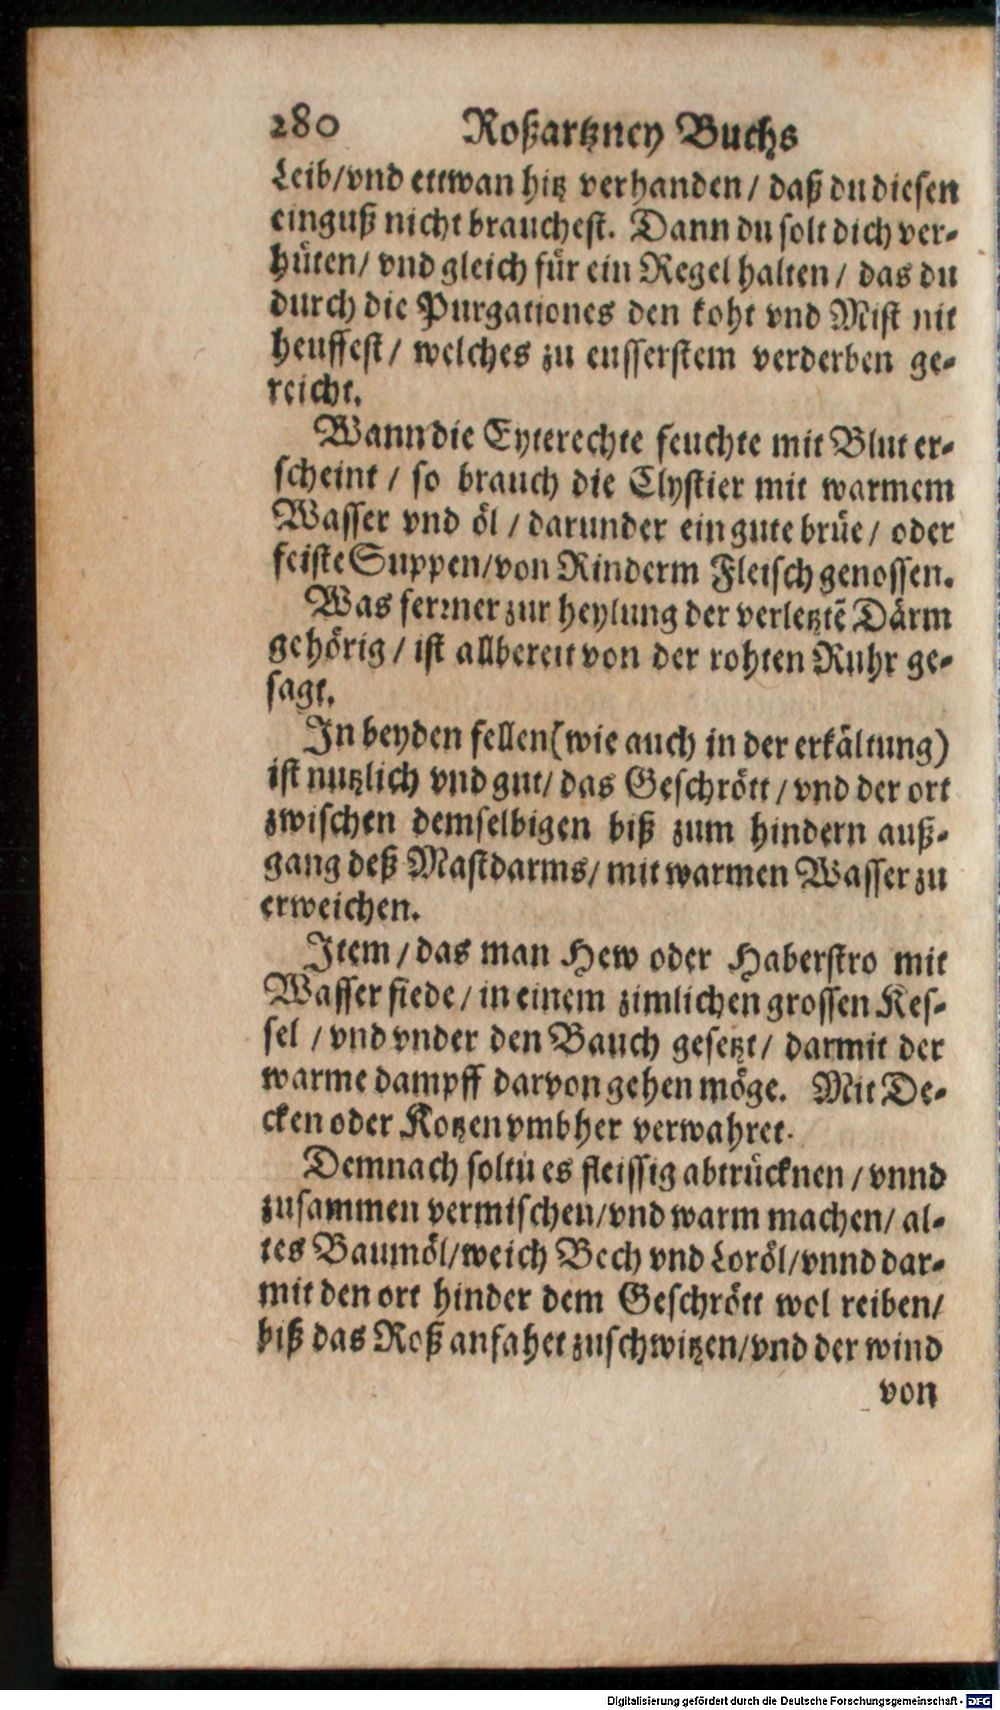 280 Roßartzney Buchs
Leib/vnd ettwan hitz verhanden/ daß du diesen
einguß nicht brauchest. Dann du solt dich ver-
hüten/ vnd gleich für ein Regel halten/ das du
durch die Purgationes den koht vnd Mist nit
heuffest/ welches zu eusserstem verderben ge-
reicht.
Wann die Eyterechte feuchte mit Blut er-
scheint/ so brauch die Clystier mit warmem
Wasser vnd öl/ darunder ein gute brüe/ oder
feiste Suppen/von Rinderm Fleisch genossen.
Was ferrner zur heylung der verletztẽ Därm
gehörig/ ist allbereit von der rohten Ruhr ge-
sagt.
In beyden fellen(wie auch in der erkältung)
ist nutzlich vnd gut/ das Geschrött/ vnd der ort
zwischen demselbigen biß zum hindern auß-
gang deß Mastdarms/ mit warmen Wasser zu
erweichen.
Item/ das man Hew oder Haberstro mit
Wasser siede/ in einem zimlichen grossen Kes-
sel/ vnd vnder den Bauch gesetzt/ darmit der
warme dampff darvon gehen möge. Mit De-
cken oder Kotzen vmbher verwahret.
Demnach soltu es fleissig abtrücknen/ vnnd
zusammen vermischen/vnd warm machen/ al-
tes Baumöl/weich Bech vnd Loröl/vnnd dar-
mit den ort hinder dem Geschrött wol reiben/
biß das Roß anfahet zuschwitzen/vnd der wind
von
Digitalisierung gefördert durch die Deutsche Forschungsgemeinschaft - DFG